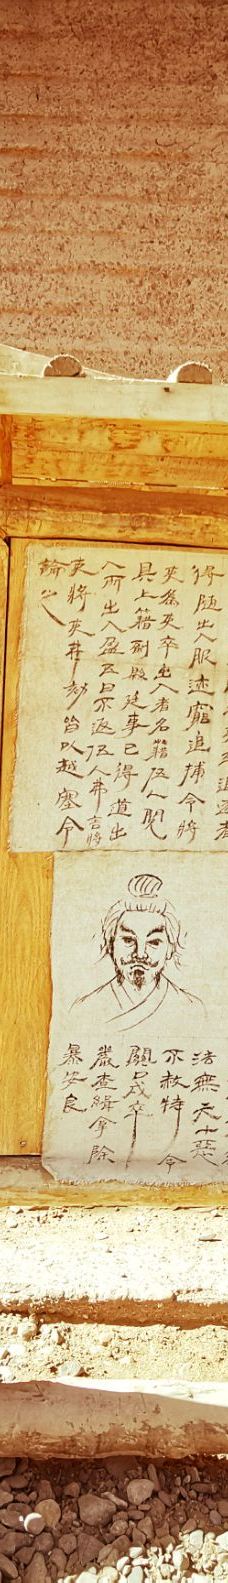 得随出入服迹窮追捕令將
夷爲夷卒出入者名籍伍人閲
具上籍副縣廷事已得道出
入而出入盈五日不返伍人弗言將
吏將吏弗劾皆以越塞令
論之
法無天十惡
不赦特令
關口戍卒
嚴查緝拿除
暴安良